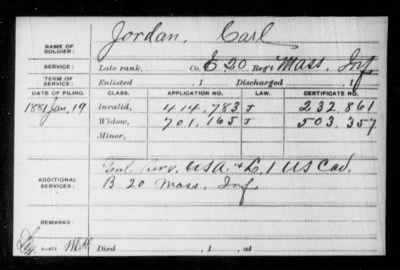 Jordan, Carl
NAME OF SOLDIER:
SERVICE: Late rank, Co. E 20 Reg't Mass. Inf
TERM OF SERVICE: Enlisted , 1 Discharged , 1
DATE OF FILING. CLASS. APPLICATION NO. LAW. CERTIFICATE NO.
1881 Jan. 19 Invalid, 414.783 J 232.861
Widow, 701.165 J 503.357
Minor,
ADDITIONAL SERVICES: Genl. Serv. USA. & L. 1 US Cav.
B 20 Mass. Inf
REMARKS:
Died , 1 , at